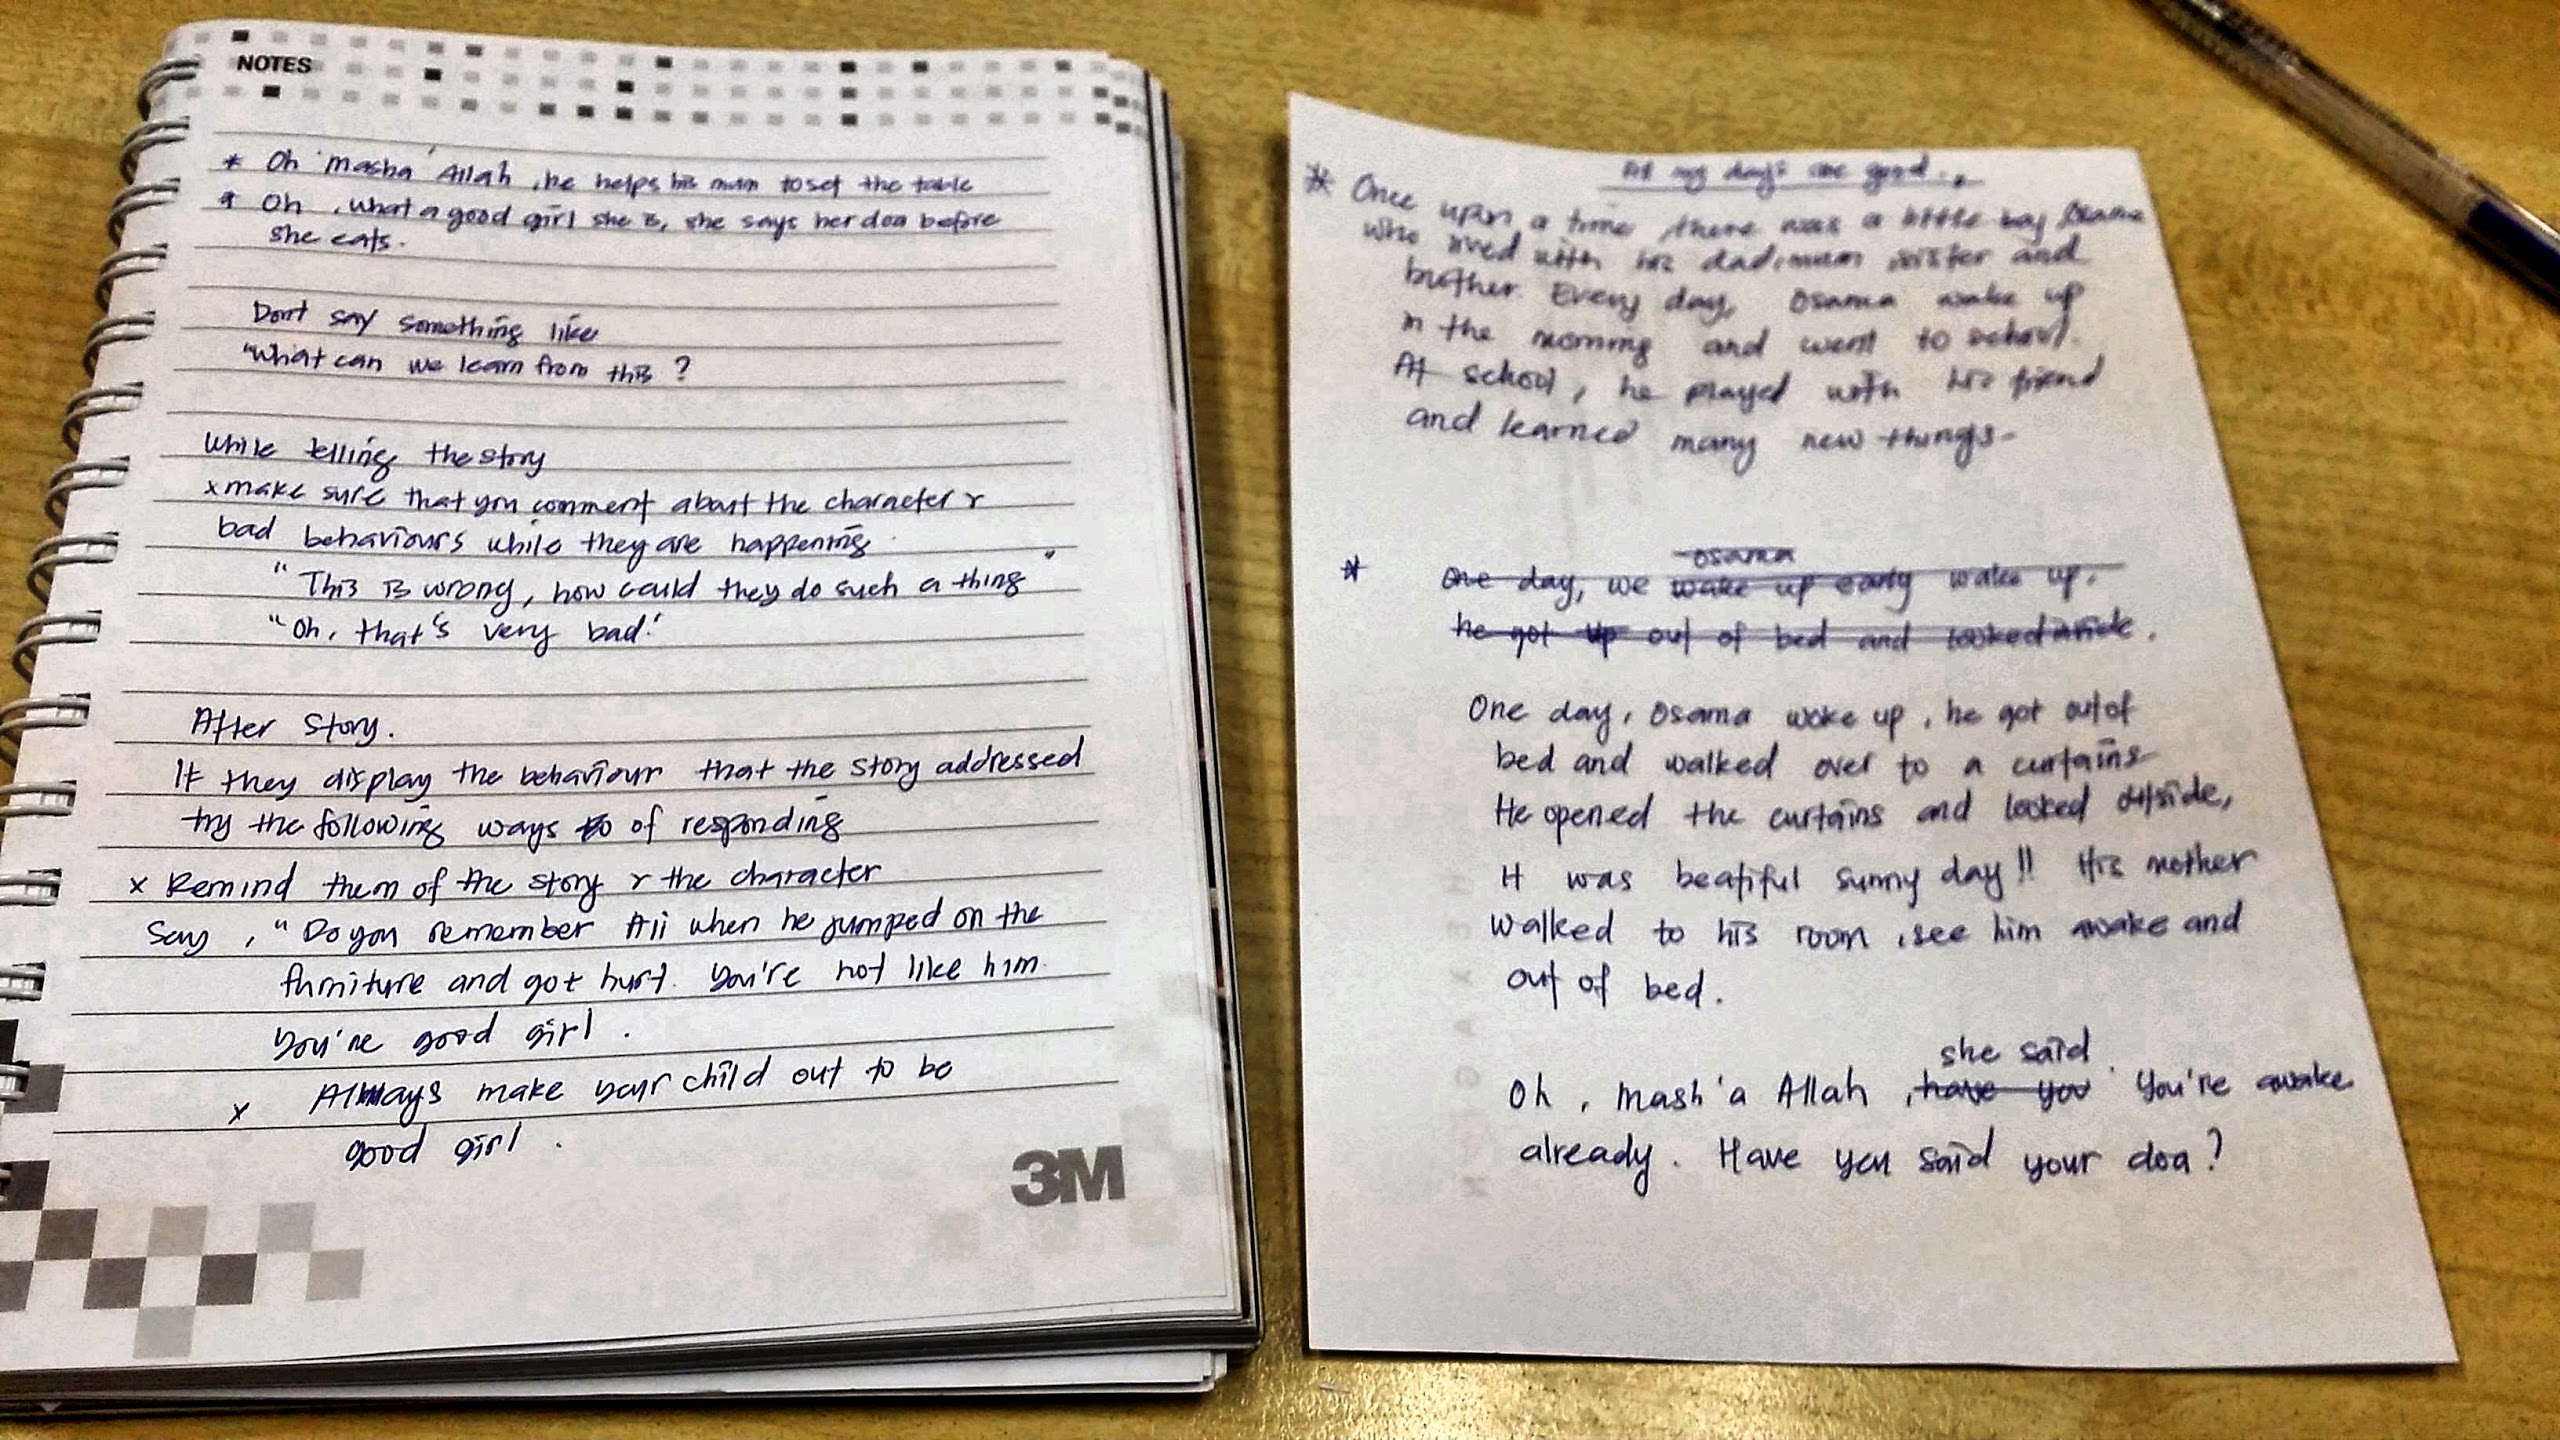 NOTES
* Oh 'masha' Allah, he helps his mum to set the table
* Oh, what a good girl she is, she says her doa before
she eats.
Dont say something like
"What can we learn from this ?
While telling the story
x make sure that you comment about the character r
bad behaviours while they are happening.
"This is wrong, how could they do such a thing"
"Oh, that's very bad."
After story.
If they display the behaviour that the story addressed
try the following ways to of responding
x Remind them of the story r the character
Say, "Do you remember Ali when he jumped on the
furniture and got hurt. You're not like him.
You're good girl.
x Always make your child out to be
good girl.
3M
All my days are good.
* Once upon a time, there was a little boy Osama
who lived with his dad, mum, sister and
brother. Every day, Osama wake up
in the morning and went to school.
At school, he played with his friend
and learned many new things-
Osama
* One day, we wake up early wake up.
he got up out of bed and looked inside.
One day, Osama woke up, he got out of
bed and walked over to a curtains
He opened the curtains and looked outside,
It was beatiful sunny day!! His mother
walked to his room, see him awake and
out of bed.
she said
Oh, mash'a Allah, have you You're awake
already. Have you said your doa?